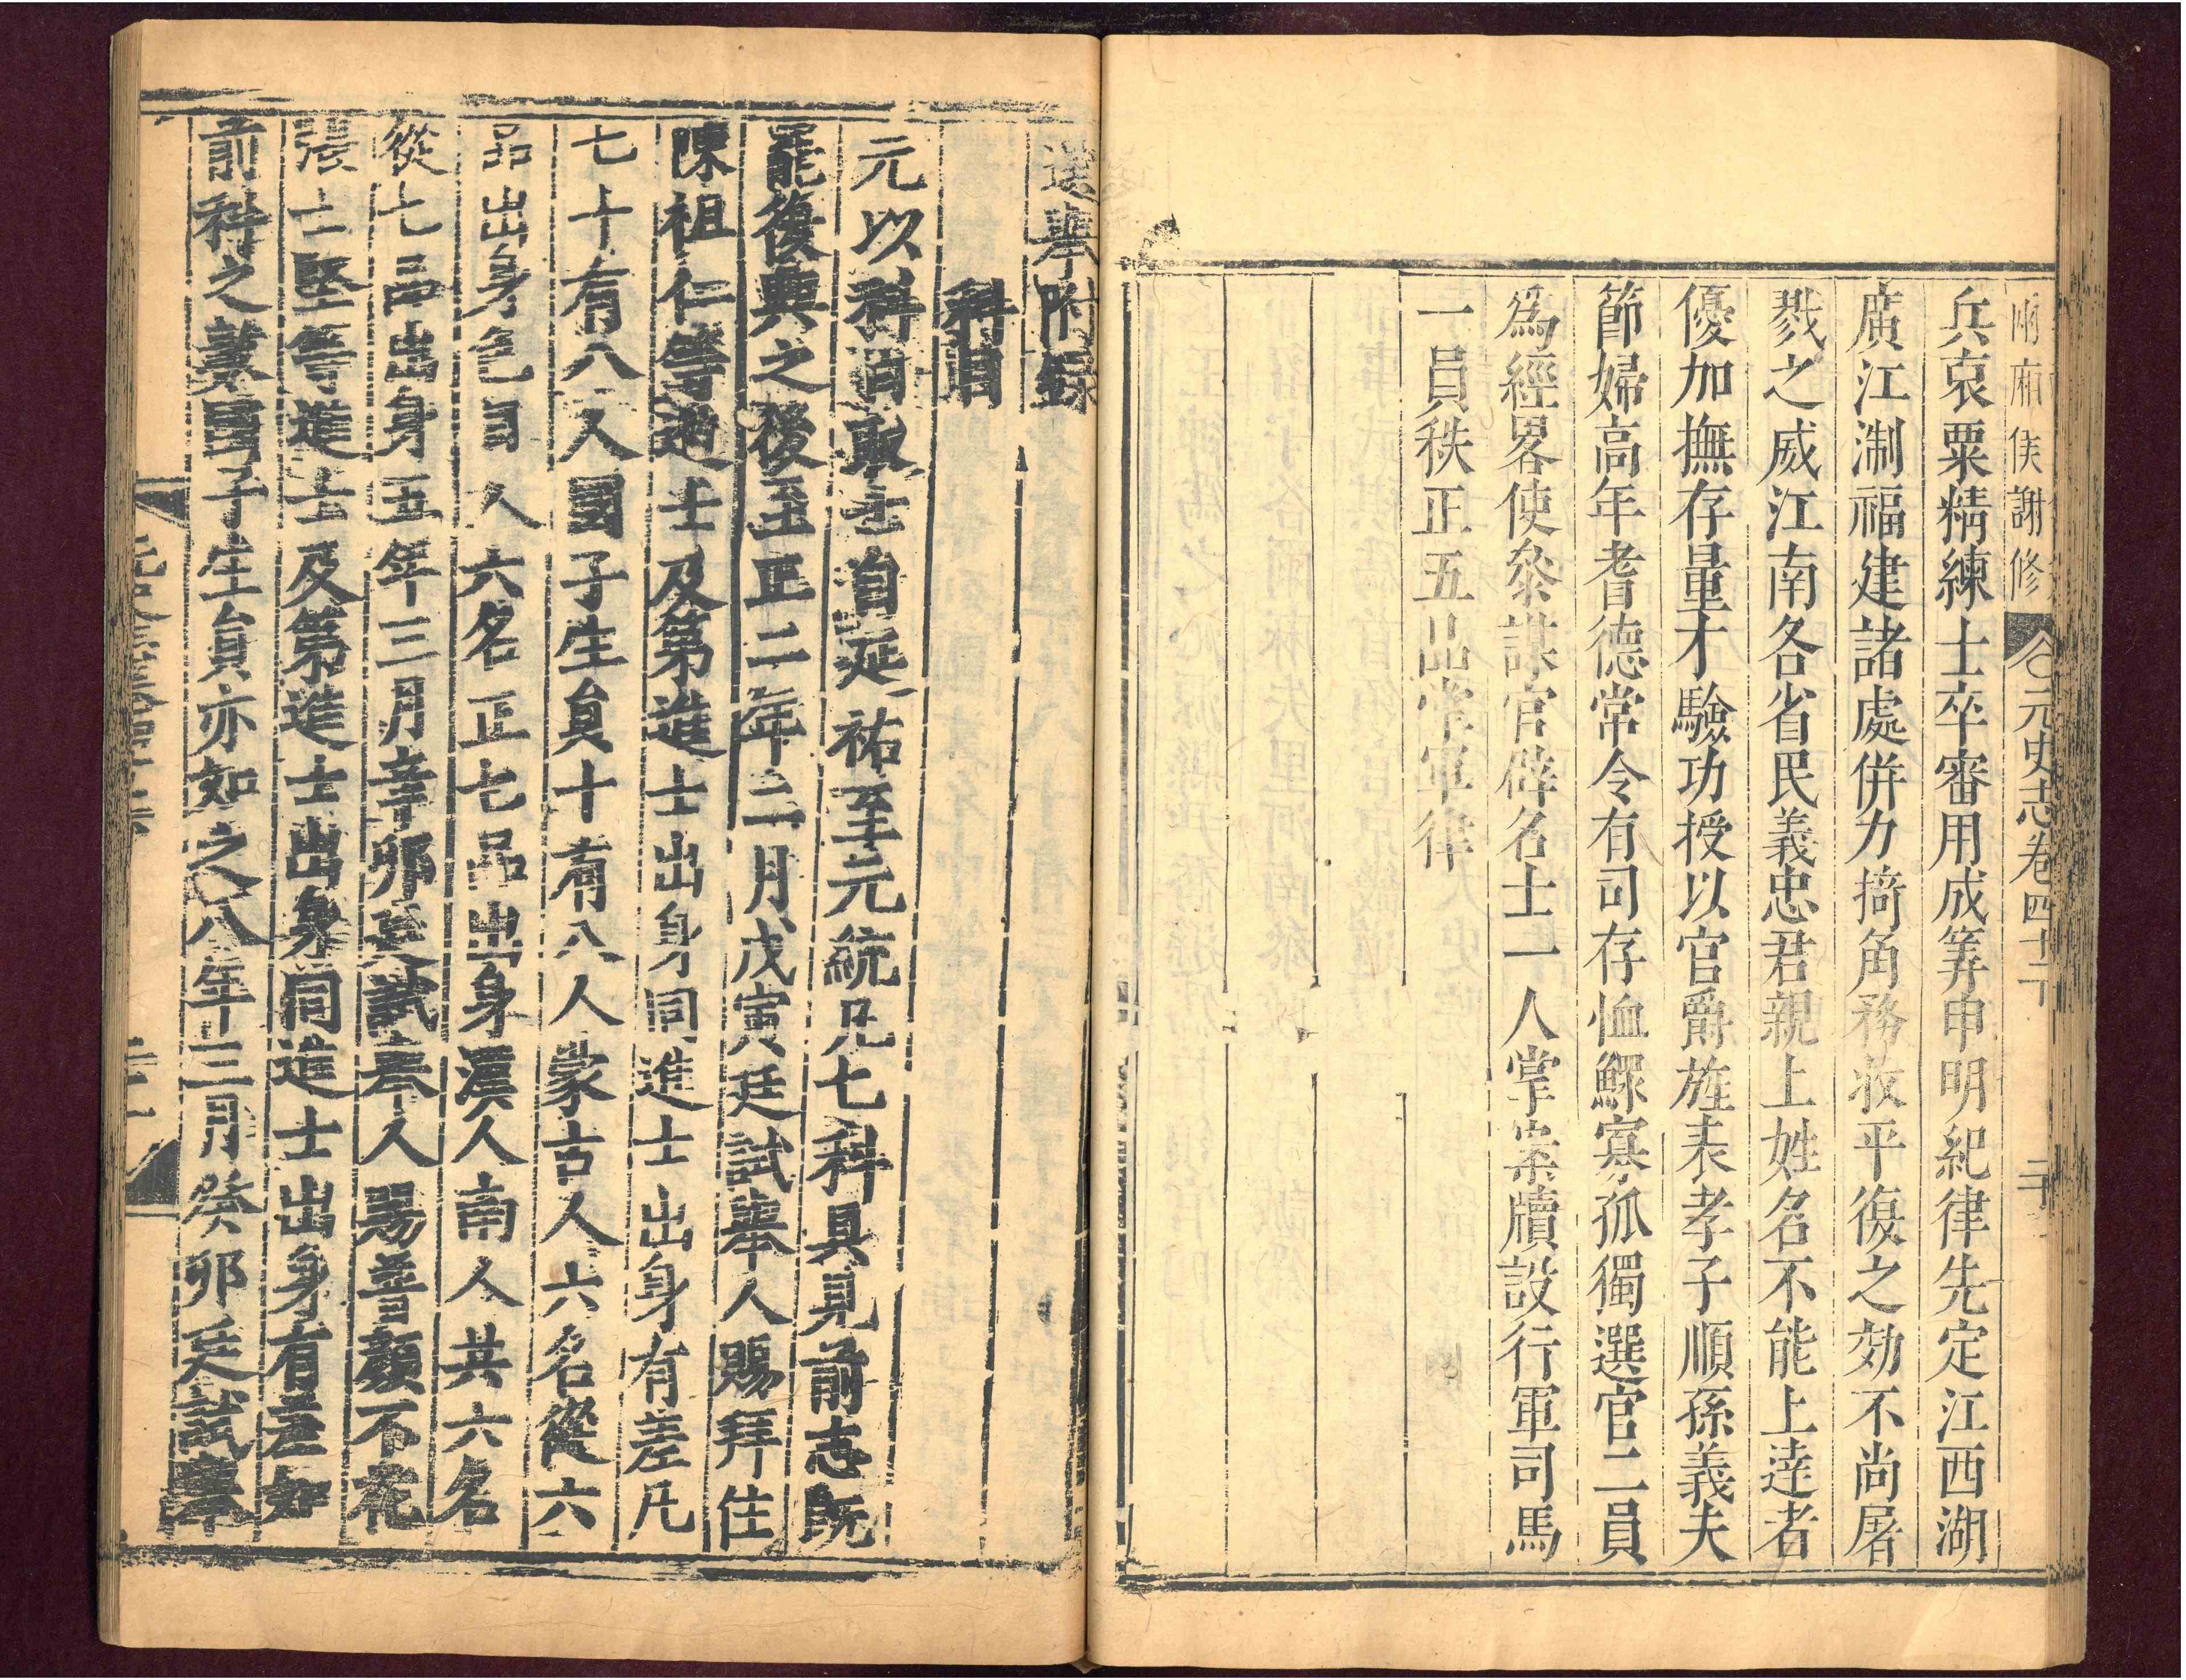 兩廂侯謝修 元史志卷四十一下 二十
兵裒粟精練士卒審用成筭申明紀律先定江西湖
廣江淛福建諸處併力掎角務收平復之効不尚屠
戮之威江南各省民義忠君親上姓名不能上達者
優加撫存量才驗功授以官爵旌表孝子順孫義夫
節婦高年耆德常令有司存恤鰥寡孤獨選官二員
爲經畧使叅謀官辟名士一人掌案牘設行軍司馬
一員秩正五品掌軍律
選舉附錄
科目
元以科目取士自延祐至元統凡七科具見前志既
罷復興之後至正二年三月戊寅廷試舉人賜拜住
陳祖仁等進士及第進士出身同進士出身有差凡
七十有八人國子生員十有八人蒙古人六名從六
品出身色目人六名正七品出身漢人南人共六名
從七品出身五年三月辛卯廷試舉人賜普顏不花
張士堅等進士及第進士出身同進士出身有差如
前科之數國子生員亦如之八年三月癸卯廷試舉